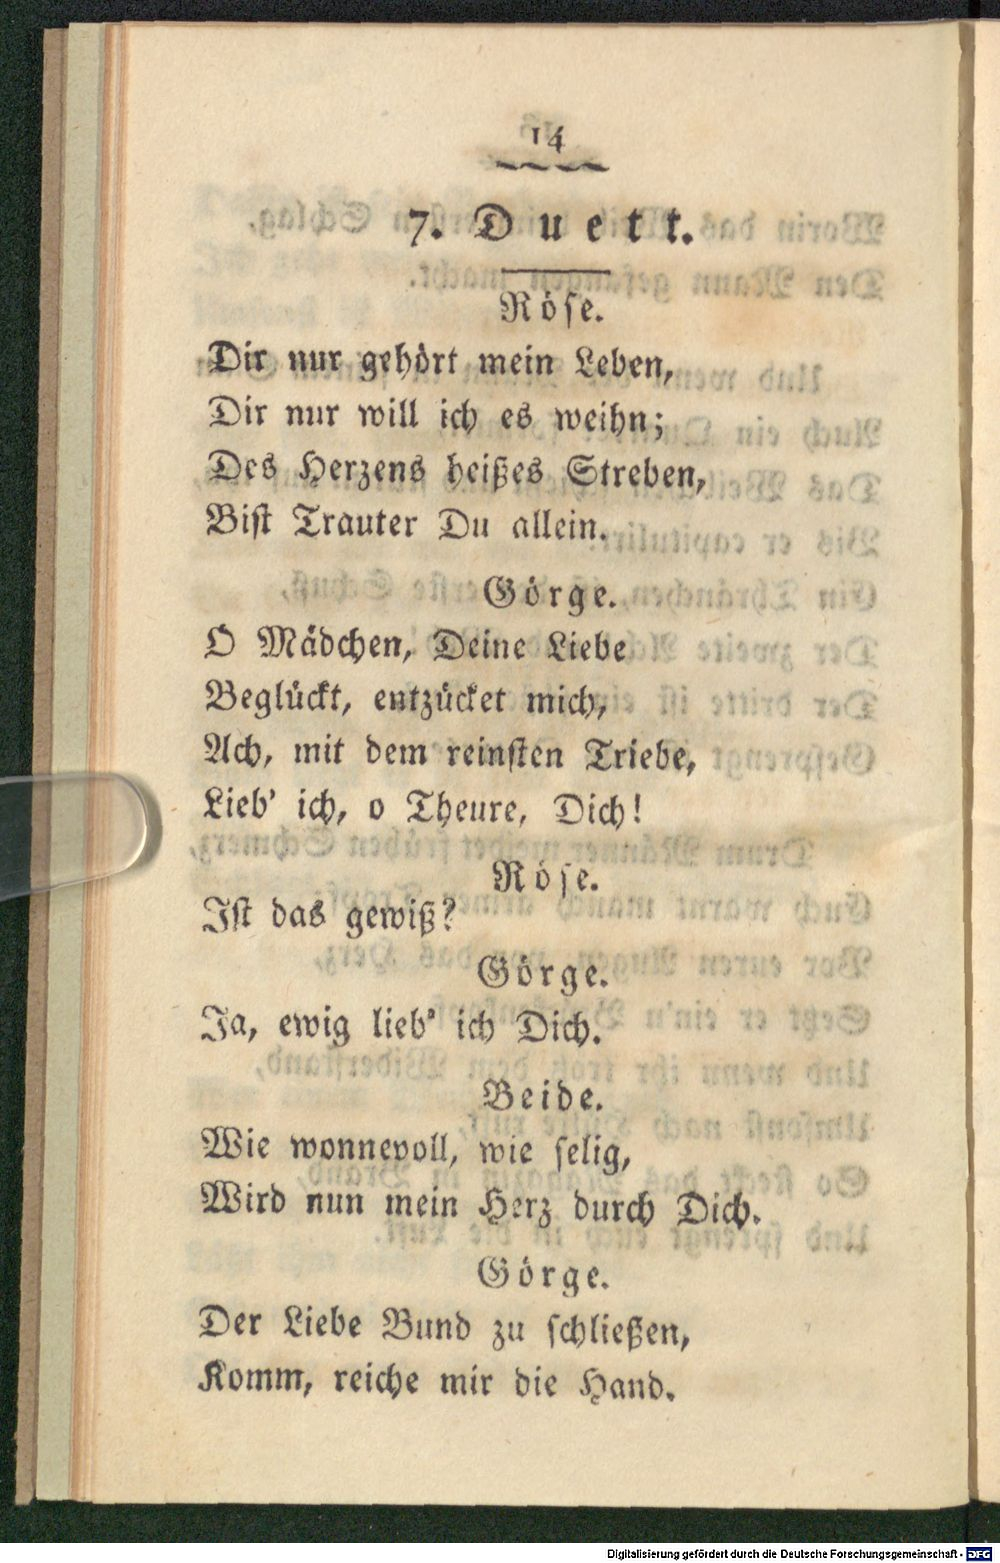 14
7. Duett.
Röse.
Dir nur gehört mein Leben,
Dir nur will ich es weihn;
Des Herzens heißes Streben,
Bist Trauter Du allein.
Görge.
O Mädchen, Deine Liebe
Beglückt, entzücket mich,
Ach, mit dem reinsten Triebe,
Lieb' ich, o Theure, Dich!
Röse.
Ist das gewiß?
Görge.
Ja, ewig lieb' ich Dich.
Beide.
Wie wonnevoll, wie selig,
Wird nun mein Herz durch Dich.
Görge.
Der Liebe Bund zu schließen,
Komm, reiche mir die Hand.
Digitalisierung gefördert durch die Deutsche Forschungsgemeinschaft - DFG